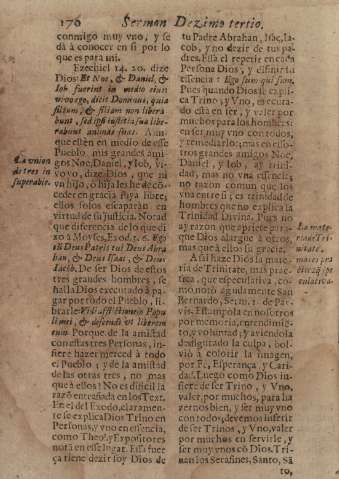 176 Sermon Dezimo tertio.
conmigo muy vno, y se
dà à conocer en si por lo
que es para mi.
Ezechiel 14. 20. dize
Dios: Et Noe, & Daniel, &
Iob fuerint in medio eius
vivo ego, dicit Dominus, quia
filium, & filiam non libera
bunt, sed ipsi iustitia sua libe-
rabunt animas suas. Aun-
que estèn en medio de esse
Pueblo mis grandes amigos
Noe, Daniel, y Iob, vi-
vo yo, dize Dios, que ni
vn hijo, ò hija les he de cõ-
ceder en gracia suya libre;
ellos solos escaparàn en
virtud de su justicia. Notad
que diferencia de lo que di
xo à Moyses, Exod. 3. 6. Ego
sũ Deus Patris tui Deus Abra
han, & Deus Isaac, & Deus
Iacob. De ser Dios de estos
tres grandes hombres, se
halla Dios executado à pa-
gar por todo el Pueblo, li-
brarle: Vidi afflictionem Popu
li mei, & descendi vt liberem
eum. Porque de la amistad
con estas tres Personas, in-
fiere hazer merced à todo
el Pueblo; y de la amistad
de las otras tres, no mas
que à ellos? No es dificil la
razõ entreñada en los Text.
En el del Exodo, claramen-
te se explica Dios Trino en
Personas, y vno en essencia,
como Theol. y Expositores
notàn en esse lugar. Essa fuer
ça tiene dezir soy Dios de
La vnion
de tres in
superable.
tu Padre Abrahan, Isac, Ia-
cob, y no dezir de tus pa-
dres. Essa el repetir en cada
Persona Dios, y difinir la
essencia: Ego sum qui sum.
Pues quando Dios se explica
Trino, y Vno, es executa-
do dia en ser, y valer por
muchos para los hombres:
en ser muy vno con todos,
y remediarlo; mas en es-
sotros grandes amigos Noe,
Daniel, y Iob, ay trini-
dad, mas no vna essencia;
no razon comun que los
vna entre sì; es trinidad de
hombres que no explica la
Trinidad Divina. Pues no
ay razon que apriete para
que Dios alargue à otros,
mas que à ellos la gracia.
Assi haze Dios la mate-
ria de Trinitate, mas prac-
tica, que especulativa, co-
mo notò agudamente San
Bernardo, Serm. 1. de Par-
vis. Estampola en nosotros
por memoria, entendimiẽ-
to, y voluntad; y aviendola
desfigurado la culpa, bol-
viò à colorir la imagen,
por Fè, Esperança, y Cari-
dad. Luego como Dios in-
fiere de ser Trino, y Vno,
valer, por muchos, para ha
zernos bien, y ser muy vno
con todos, devemos inferir
de ser Trinos, y Vno, valer
por muchos en servirle, y
ser muy vnos cõ Dios. Tri-
nan los Serafines, Santo, Sã
to,
La mate-
ria de Tri-
nitate,
mas es pra
ctica q̃ spe
culativa.